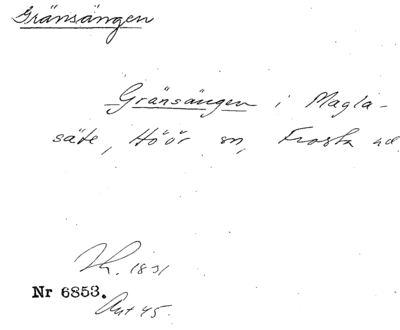 Gränsängen
Gränsängen i Magla-
säte, Höör sn, Frosta hd,
1831
Nr 6853.
Ant 45.